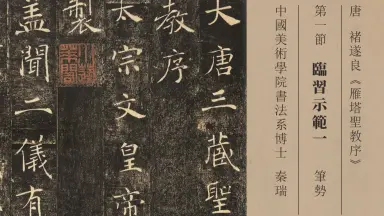 唐 褚遂良《雁塔聖教序》
第一節 臨習示範一 筆勢
中國美術學院書法系博士 秦瑞
大唐三藏聖
教序
太宗文皇帝
製
蓋聞二儀有